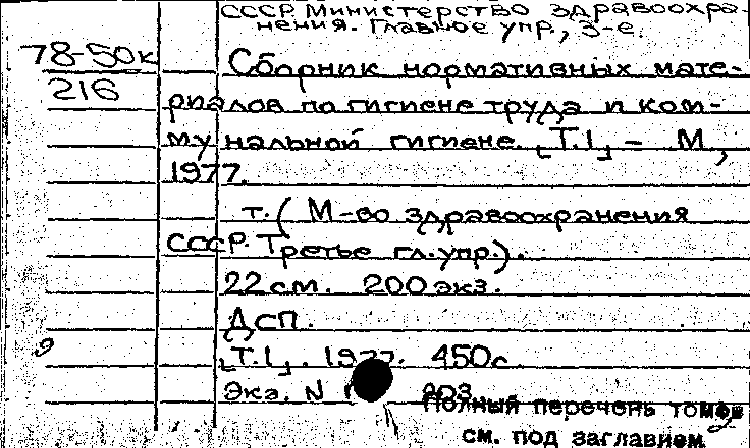 СССР Министерство здравоохра-
нения. Главное упр., 3-е.
78-50к
216
Сборник нормативных мате-
риалов по гигиене труда и ком-
мунальной гигиене. [Т.1] - М.,
1977.
т. (М-во здравоохранения
СССР. Третье гл. упр.).
22 см. 200 экз.
ДСП.
[Т.1]. 1977. 450с.
Экз. N
Полный перечень томов
см. под заглавием